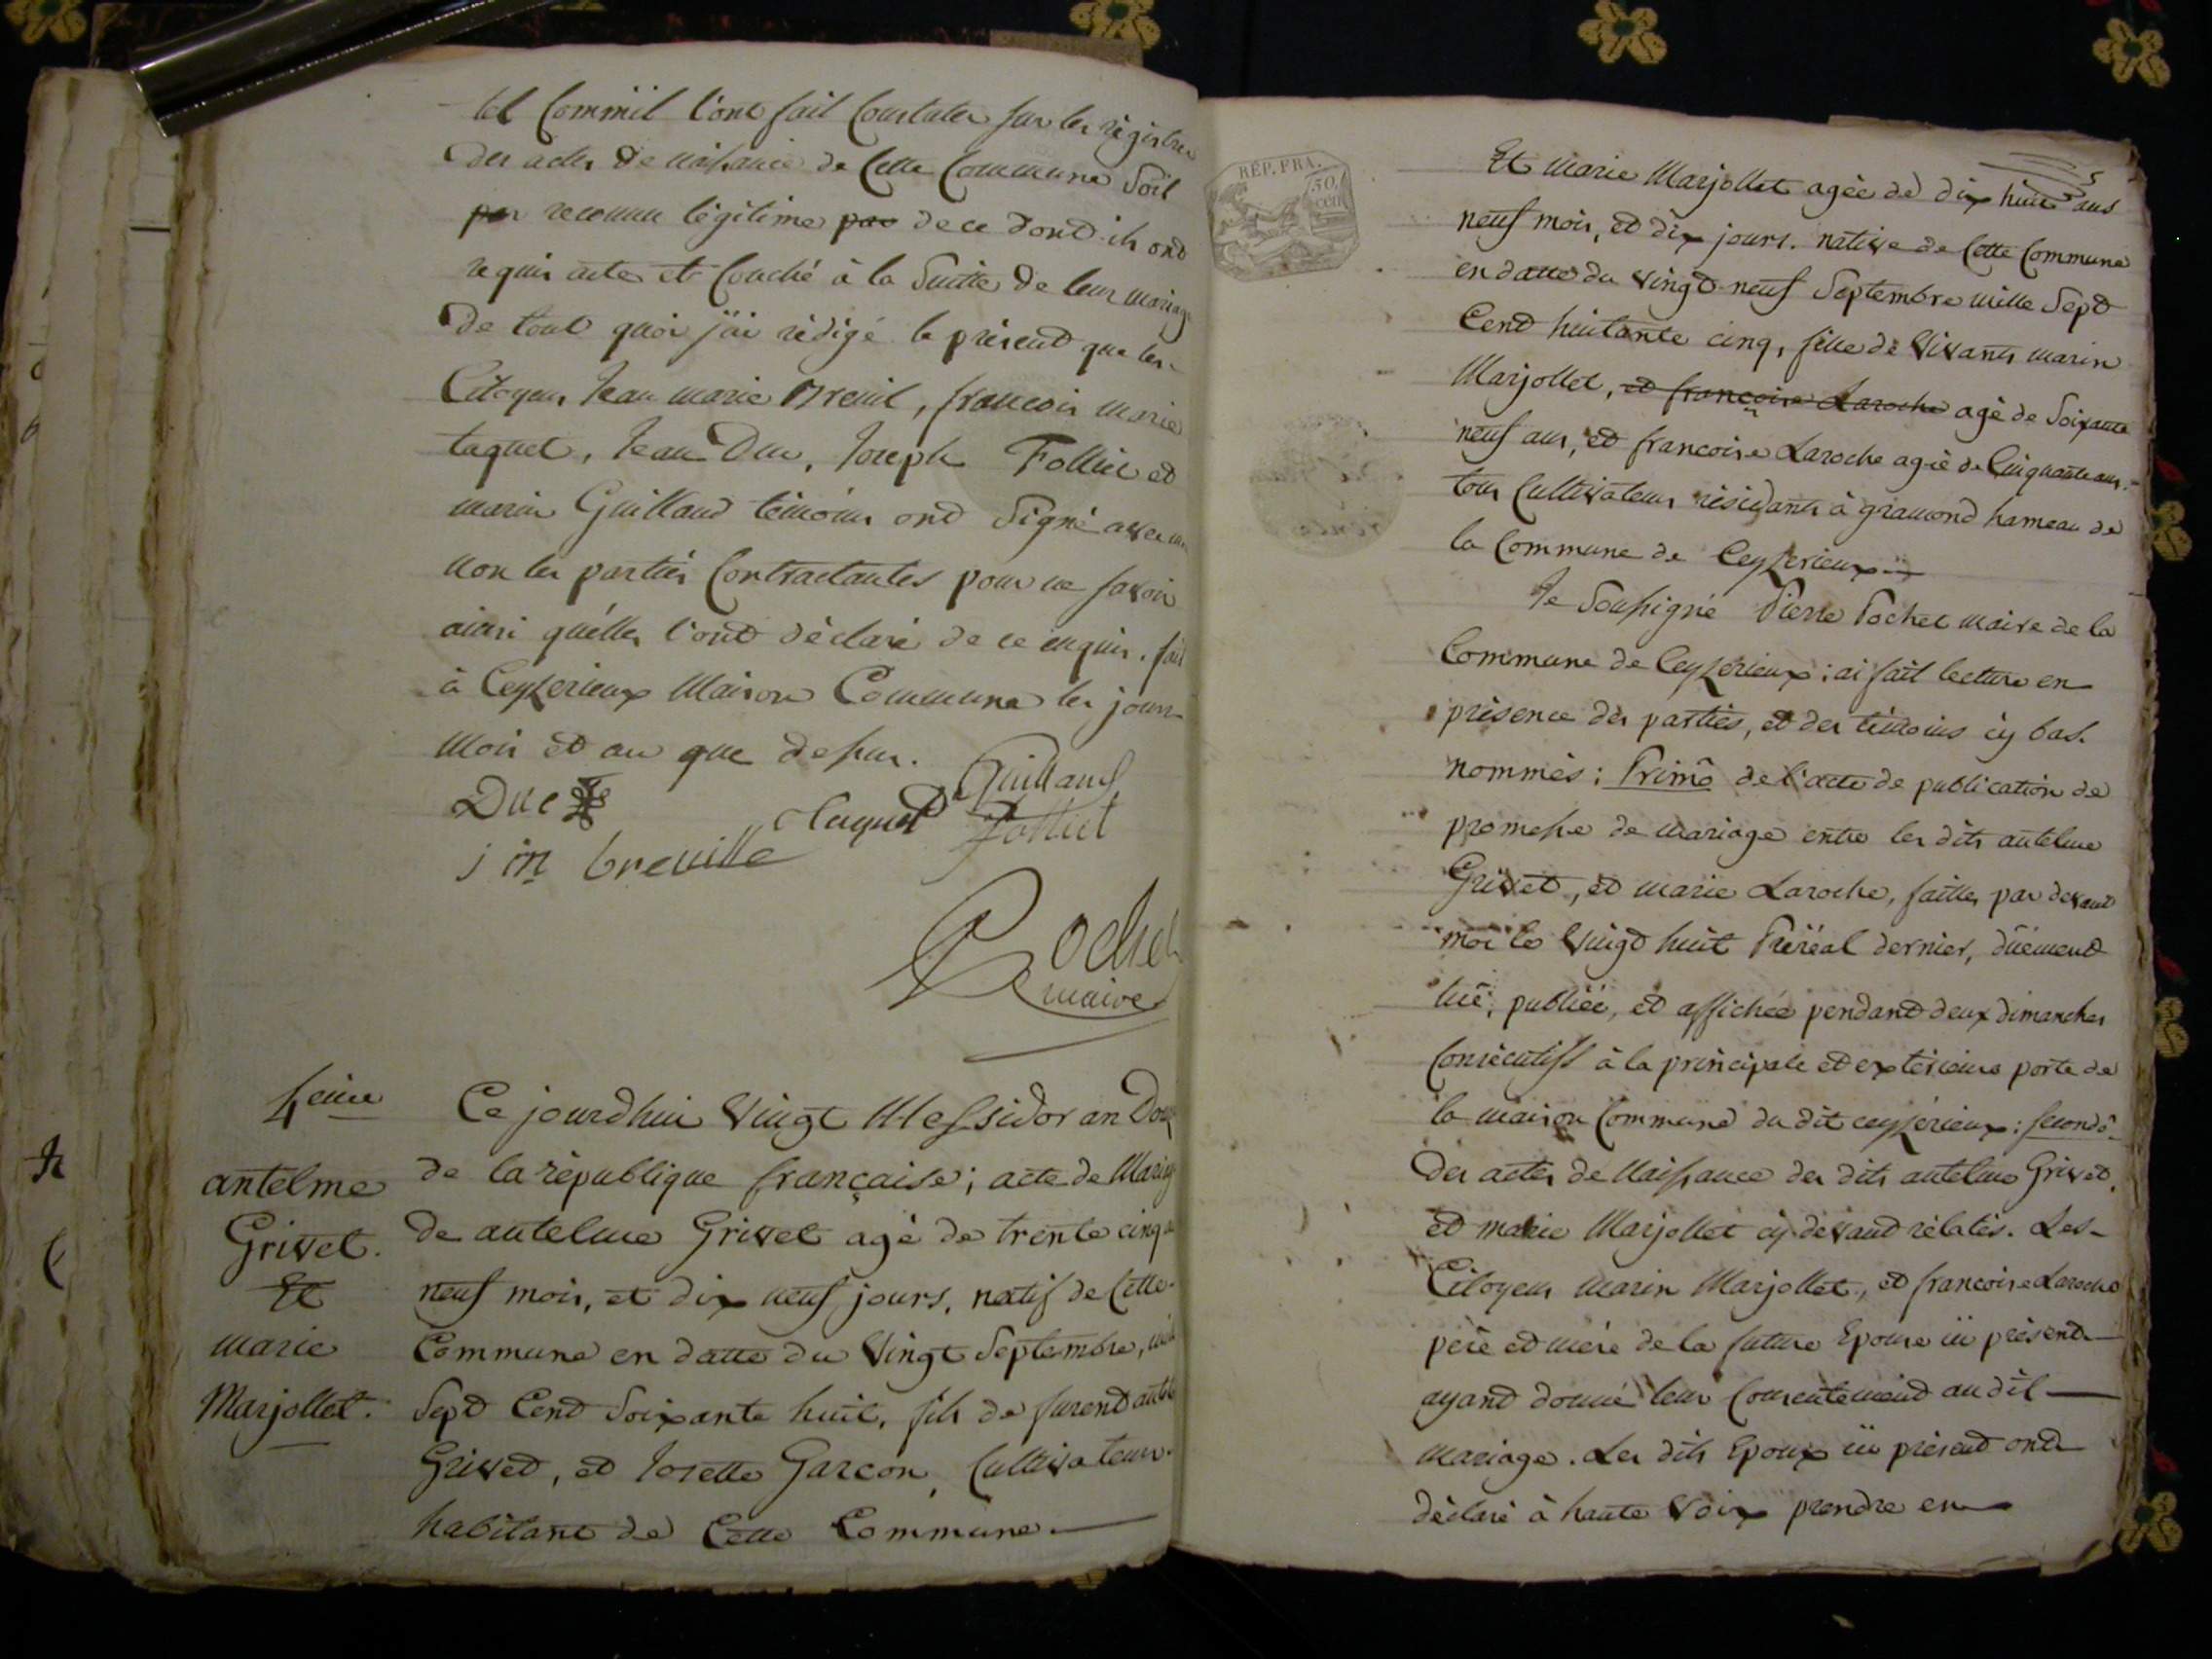 tel Comm'il l'ont fait Constater sur les règistres
des actes de naissance de Cette Commune Soit
par reconnu légitime par de ce dont ils ont
requis acte et Couché à la Suitte de leur mariage
De tout quoi j'ai rédigé le présent que les
Citoyens Jean marie Breuil, francois marie
taquet, Jean Duc, Joseph Folliet et
marin Guilland témoins ont Signé avec
non les parties Contractantes pour ne savoir
ainsi qu'elles l'ont déclaré de ce enquis. fait
à Ceyzerieux Maison Commune les jour
Mois et an que dessus.
Duc
Guilland
taquet
folliet
j m breuille
Pochet
maire
4eme
antelme
Grivet.
Et
marie
Marjollet.
Ce jourdhui Vingt Messidor an Douze
de la république française; acte de Mariage
de antelme Grivet agé de trente cinq
neuf mois, et dix neuf jours, natif de Cette
Commune en datte du Vingt Septembre, mil
Sept Cend Soixante huit, fils de furent antelme
Grivet, et Josette Garcon, Cultivateur.
habitant de Cette Commune.
5
REP. FRA.
50. cen
Et marie Marjollet agée de dix huit ans
neuf mois, et dix jours. native de Cette Commune
en datte du Vingt-neuf Septembre mille Sept
Cend huitante cinq, fille de Vivants marin
Marjollet, et françoise Laroche agé de Soixante
neuf ans, et francoise Laroche agée de Cinquante ans.
tous Cultivateurs résidants à gramond hameau de
la Commune de Ceyzerieux
Je Soussigné Pierre Pochet maire de la
Commune de Ceyzérieux: ai fait lecture en
présence des parties, et des témoins cy bas.
nommés: Primô de l'acte de publication de
promesse de mariage entre les dits antelme
Grivet, et marie Laroche, faitte par devant
moi le Vingt huit Préréal dernier, düement
luë, publiée, et affichée pendant deux dimanches
Consécutifs à la principale et extérieure porte de
la maison Commune du dit ceyzérieux: secondô
Des actes de Naissance des dits antelme Grivet,
et marie Marjollet cy devant rélatés. Les
Citoyens marin Marjollet, et francoise Laroche
père et mère de la future Epouse ici présents
ayant donné leur Consentement au dit
mariage. Les dits Epoux ici présent ont
déclaré à haute Voix prendre en